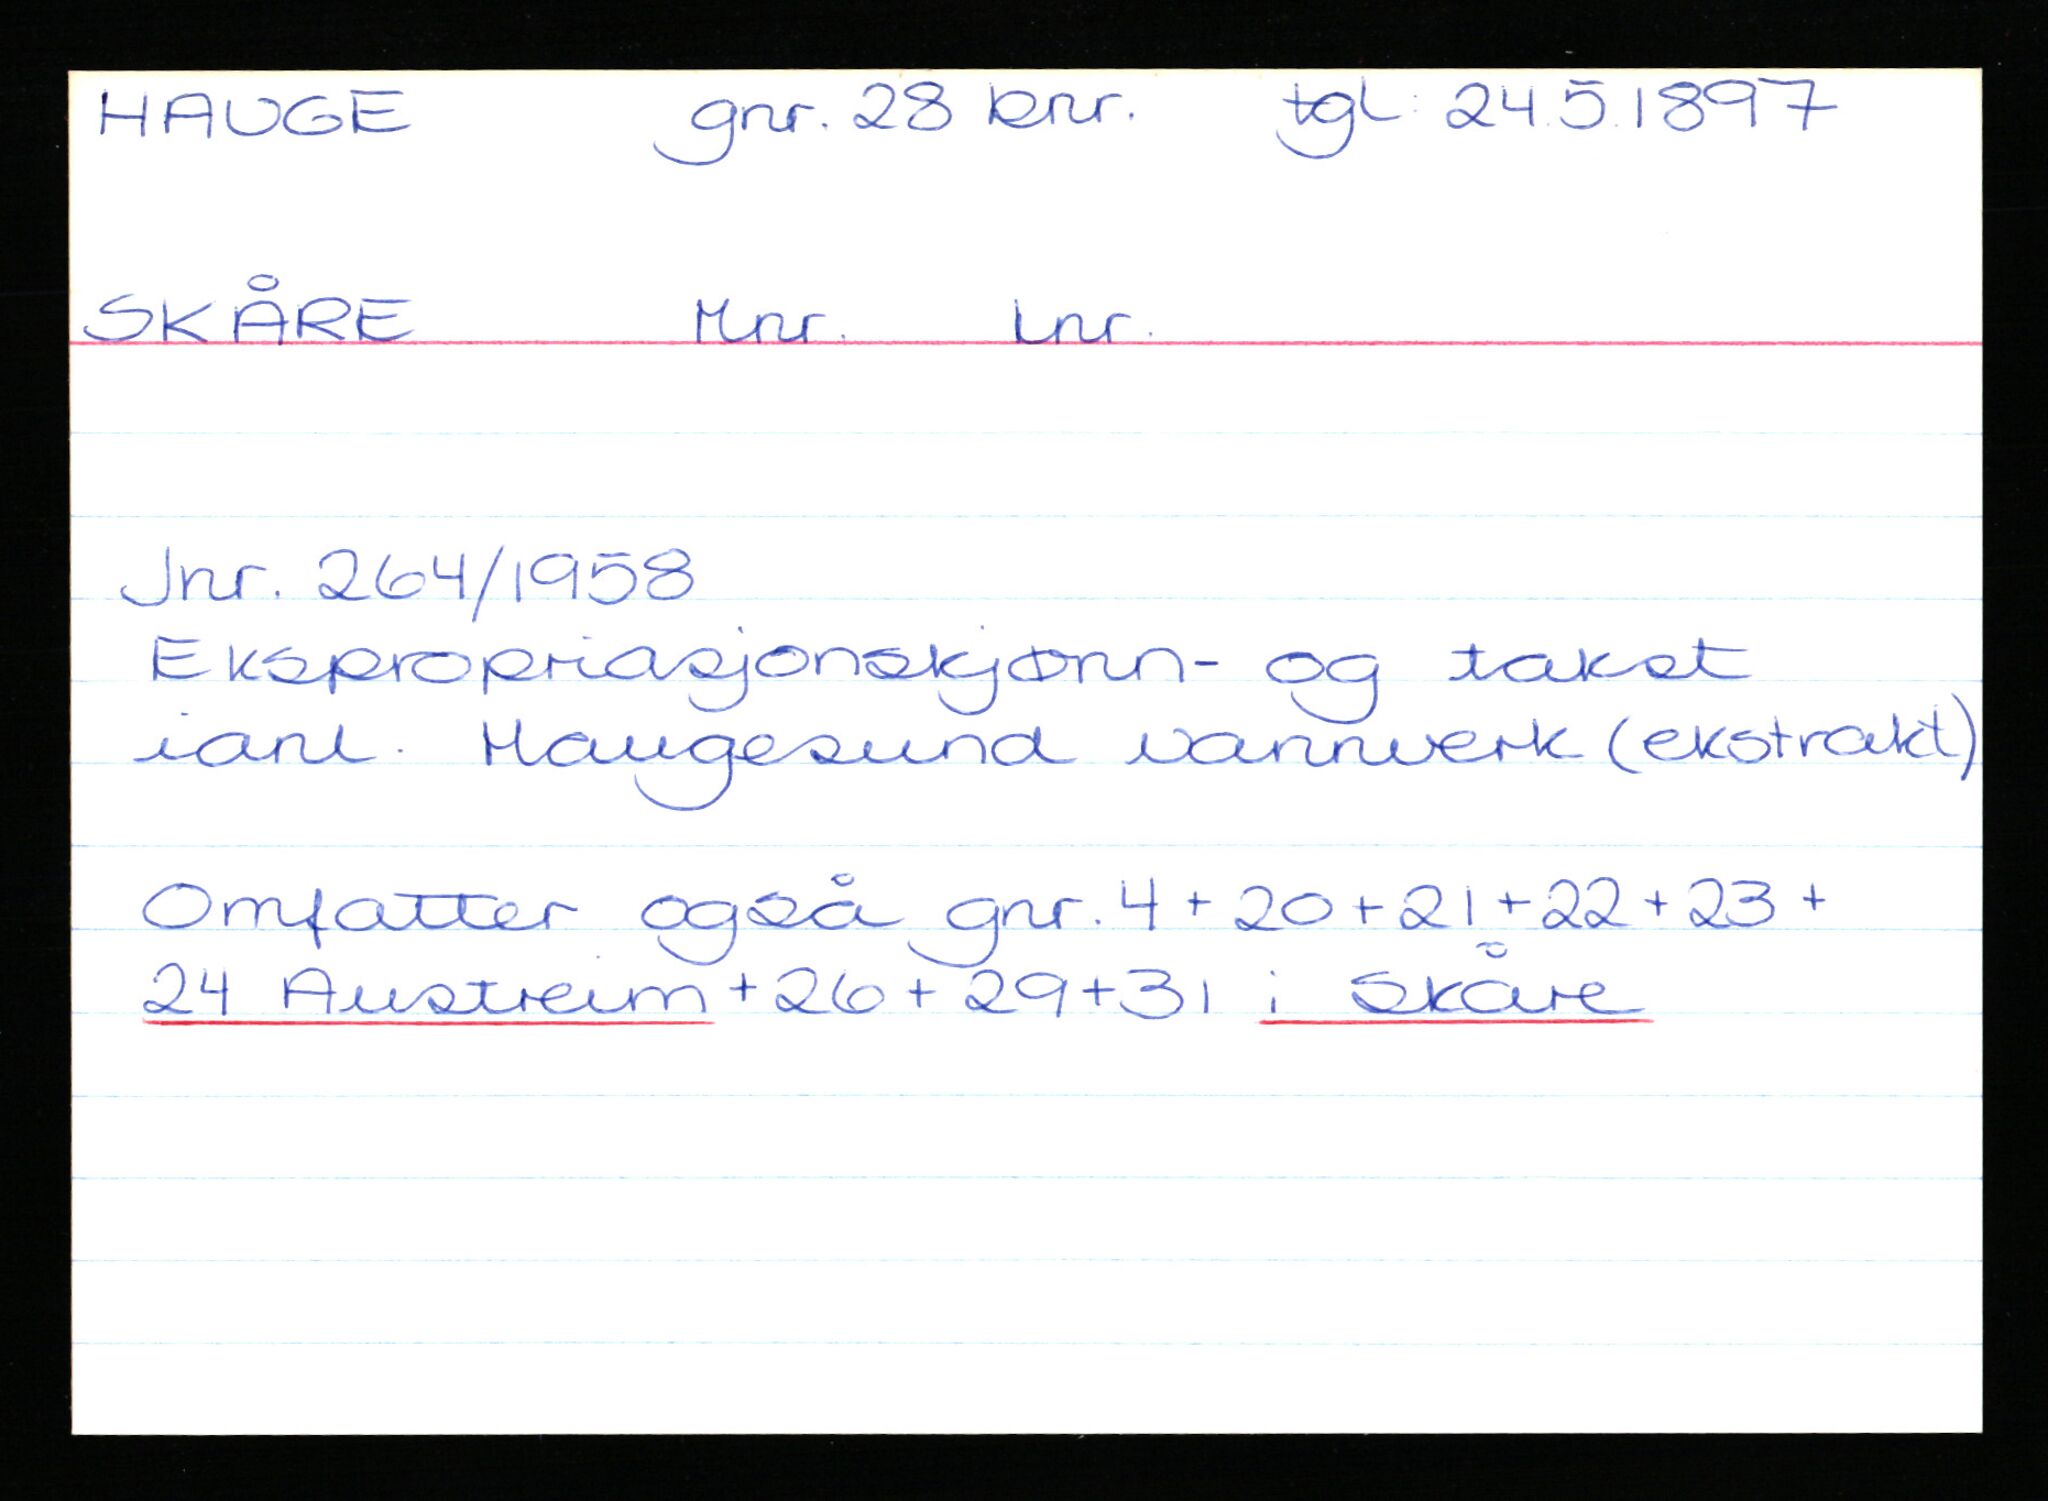 HAUGE gnr. 28 bnr. tgl: 24.5.1897
SKÅRE Mnr. Lnr.
Jnr. 264/1958
Ekspropriasjonskjønn- og takst
ianl. Haugesund vannverk (ekstrakt)
Omfatter også gnr. 4 + 20 + 21 + 22 + 23 +
24 Austreim + 26 + 29 + 31 i Skåre